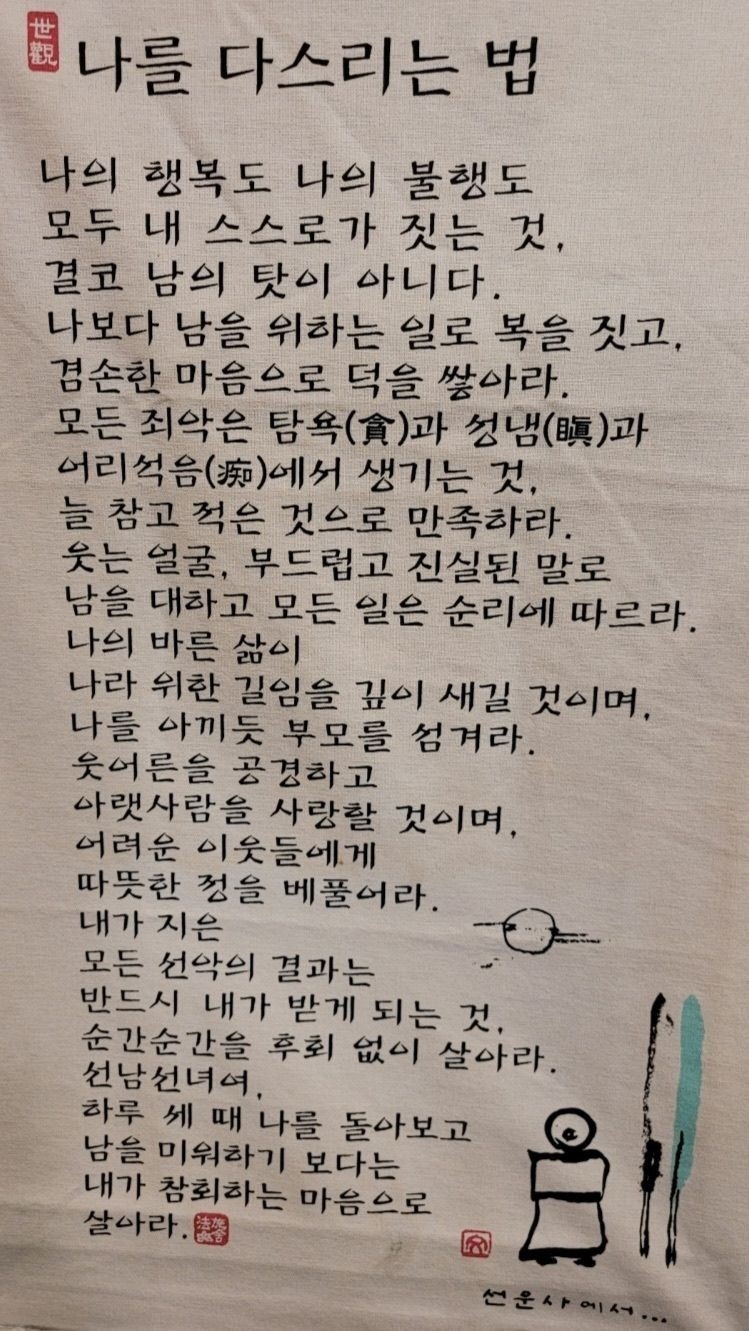 世觀
나를 다스리는 법
나의 행복도 나의 불행도
모두 내 스스로가 짓는 것,
결코 남의 탓이 아니다.
나보다 남을 위하는 일로 복을 짓고,
겸손한 마음으로 덕을 쌓아라.
모든 죄악은 탐욕(貪)과 성냄(瞋)과
어리석음(痴)에서 생기는 것,
늘 참고 적은 것으로 만족하라.
웃는 얼굴, 부드럽고 진실된 말로
남을 대하고 모든 일은 순리에 따르라.
나의 바른 삶이
나라 위한 길임을 깊이 새길 것이며,
나를 아끼듯 부모를 섬겨라.
웃어른을 공경하고
아랫사람을 사랑할 것이며,
어려운 이웃들에게
따뜻한 정을 베풀어라.
내가 지은
모든 선악의 결과는
반드시 내가 받게 되는 것,
순간순간을 후회 없이 살아라.
선남선녀여,
하루 세 때 나를 돌아보고
남을 미워하기 보다는
내가 참회하는 마음으로
살아라.
썬운사에서...